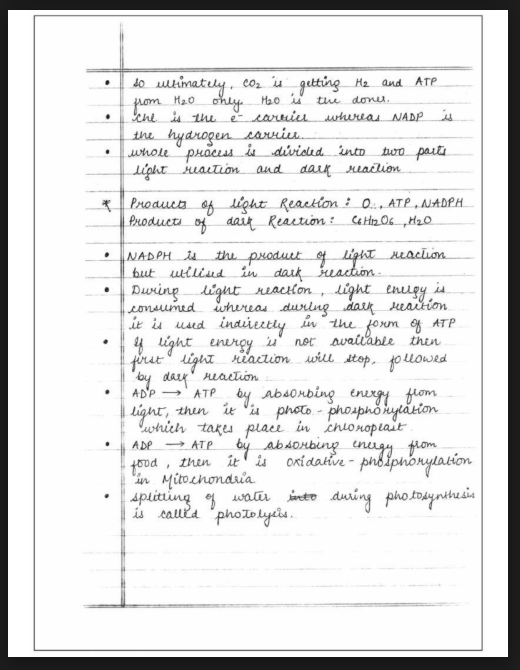 • so ultimately, CO2 is getting H2 and ATP
from H2O only. H2O is the doner.
• chl is the e- carrier whereas NADP is
the hydrogen carrier.
• whole process is divided into two parts
light reaction and dark reaction
* Products of light Reaction : O2, ATP, NADPH
Products of dark Reaction : C6H12O6, H2O
• NADPH is the product of light reaction
but utilised in dark reaction.
• During light reaction, light energy is
consumed whereas during dark reaction
it is used indirectly in the form of ATP
• If light energy is not available then
first light reaction will stop, followed
by dark reaction.
• ADP → ATP by absorbing energy from
light, then it is photo-phosphorylation
which takes place in chloroplast.
• ADP → ATP by absorbing energy from
food, then it is oxidative-phosphorylation
in Mitochondria
• splitting of water into during photosynthesis
is called photolysis.